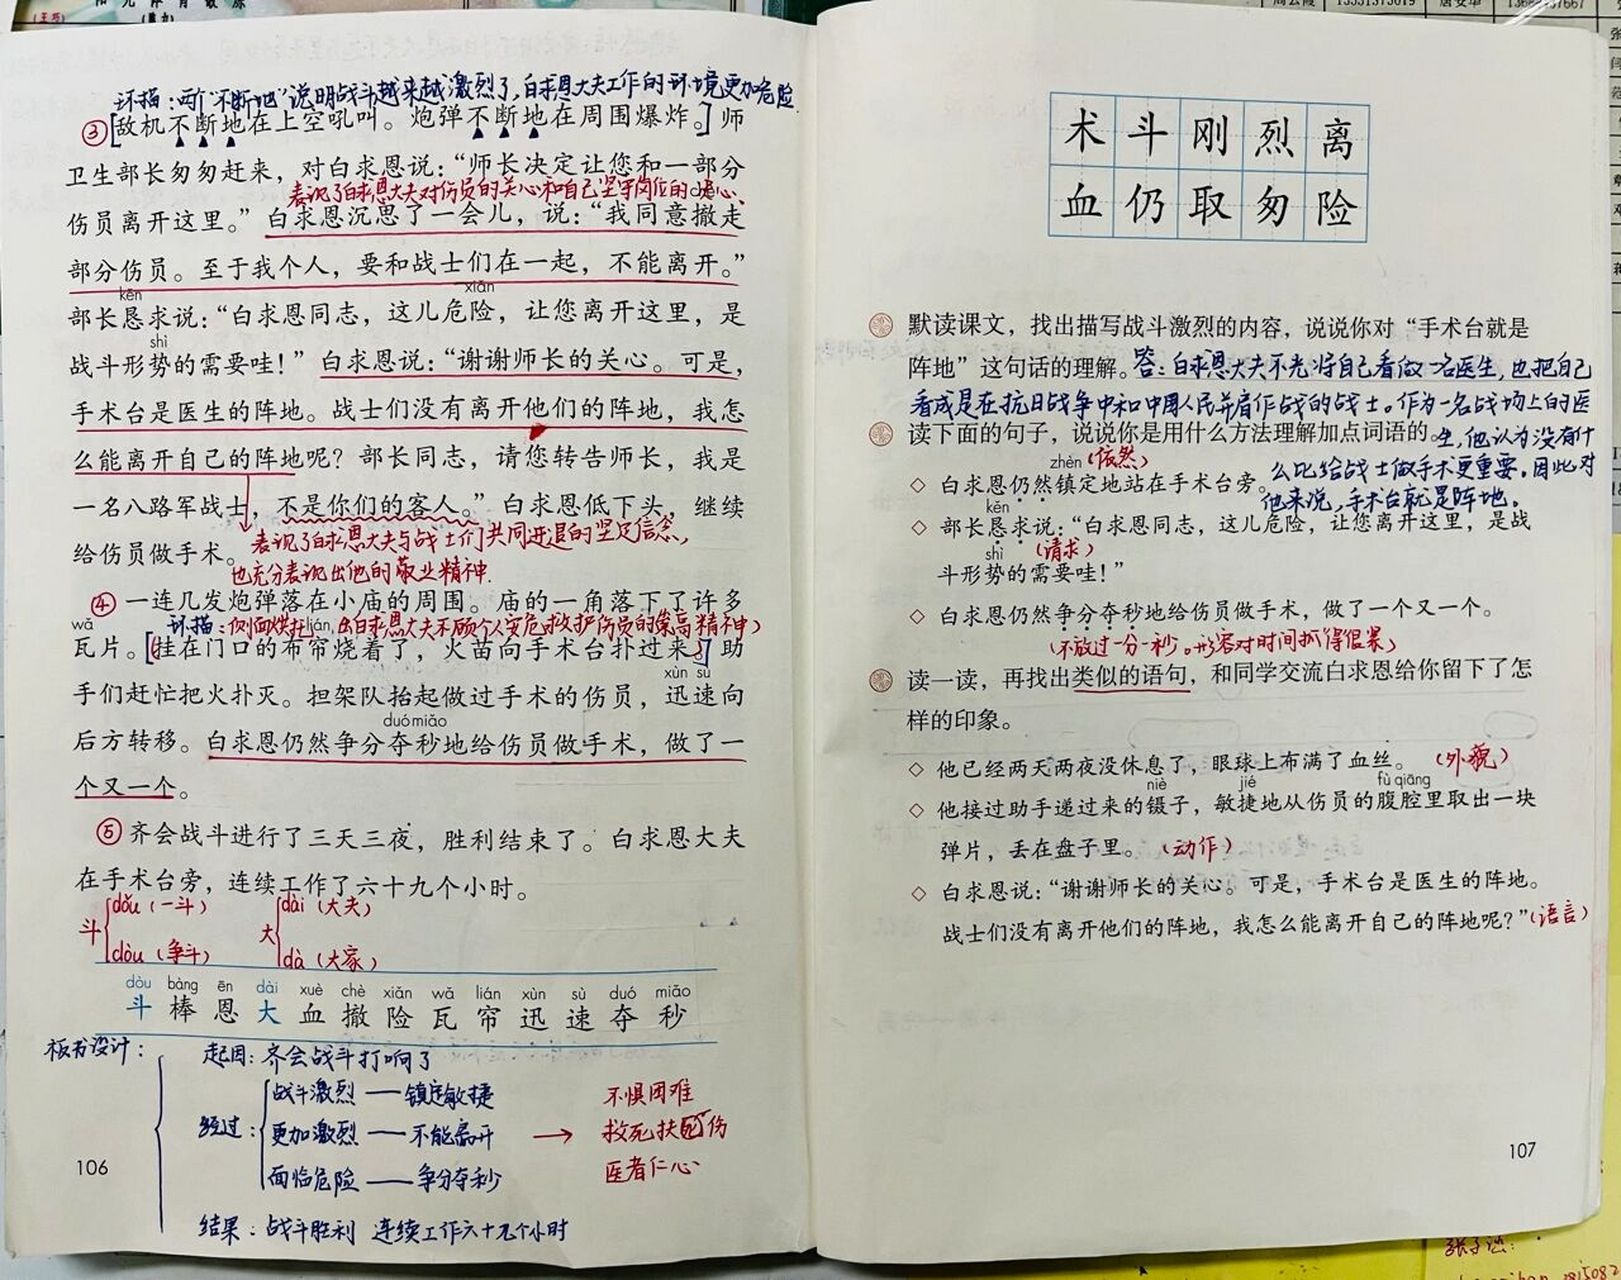 环描：两个“不断地”说明战斗越来越激烈了，白求恩大夫工作的环境更加危险
③[敌机不断地在上空吼叫。炮弹不断地在周围爆炸。]师
卫生部长匆匆赶来，对白求恩说：“师长决定让您和一部分
表现了白求恩大夫对伤员的关心和自己坚守岗位的决心、
chè
伤员离开这里。”白求恩沉思了一会儿，说：“我同意撤走
部分伤员。至于我个人，要和战士们在一起，不能离开。”
kěn xiǎn
部长恳求说：“白求恩同志，这儿危险，让您离开这里，是
shì
战斗形势的需要哇！”白求恩说：“谢谢师长的关心。可是，
手术台是医生的阵地。战士们没有离开他们的阵地，我怎
么能离开自己的阵地呢？部长同志，请您转告师长，我是
一名八路军战士，不是你们的客人。”白求恩低下头，继续
给伤员做手术。
表现了白求恩大夫与战士们共同进退的坚定信念，
也充分表现出他的敬业精神.
④一连几发炮弹落在小庙的周围。庙的一角落下了许多
wǎ lián
环描：侧面烘托出白求恩大夫不顾个人安危救护伤员的崇高精神）
瓦片。[挂在门口的布帘烧着了，火苗向手术台扑过来。]助
xùn sù
手们赶忙把火扑灭。担架队抬起做过手术的伤员，迅速向
duó miǎo
后方转移。白求恩仍然争分夺秒地给伤员做手术，做了一
个又一个。
⑤齐会战斗进行了三天三夜，胜利结束了。白求恩大夫
在手术台旁，连续工作了六十九个小时。
斗 dǒu（一斗） dòu（争斗）
大 dài（大夫） dà（大家）
dòu bàng ēn dài xuè chè xiǎn wǎ lián xùn sù duó miǎo
斗 棒 恩 大 血 撤 险 瓦 帘 迅 速 夺 秒
板书设计：
起因：齐会战斗打响了
经过：
战斗激烈——镇定敏捷
更加激烈——不能离开
面临危险——争分夺秒
不惧困难
救死扶伤
医者仁心
结果：战斗胜利 连续工作六十九个小时
106
术 斗 刚 烈 离
血 仍 取 匆 险
默读课文，找出描写战斗激烈的内容，说说你对“手术台就是
阵地”这句话的理解。答：白求恩大夫不光将自己看做一名医生，也把自己
看成是在抗日战争中和中国人民并肩作战的战士。作为一名战场上的医
读下面的句子，说说你是用什么方法理解加点词语的。生，他认为没有什
么比给战士做手术更重要。因此对
他来说，手术台就是阵地。
zhèn（依然）
◇ 白求恩仍然镇定地站在手术台旁。
kěn
◇ 部长恳求说：“白求恩同志，这儿危险，让您离开这里，是战
shì（请求）
斗形势的需要哇！”
◇ 白求恩仍然争分夺秒地给伤员做手术，做了一个又一个。
（不放过一分一秒。形容对时间抓得很紧）
读一读，再找出类似的语句，和同学交流白求恩给你留下了怎
样的印象。
◇ 他已经两天两夜没休息了，眼球上布满了血丝。（外貌）
niè jié fù qiāng
◇ 他接过助手递过来的镊子，敏捷地从伤员的腹腔里取出一块
弹片，丢在盘子里。（动作）
◇ 白求恩说：“谢谢师长的关心。可是，手术台是医生的阵地。
战士们没有离开他们的阵地，我怎么能离开自己的阵地呢？”（语言）
107